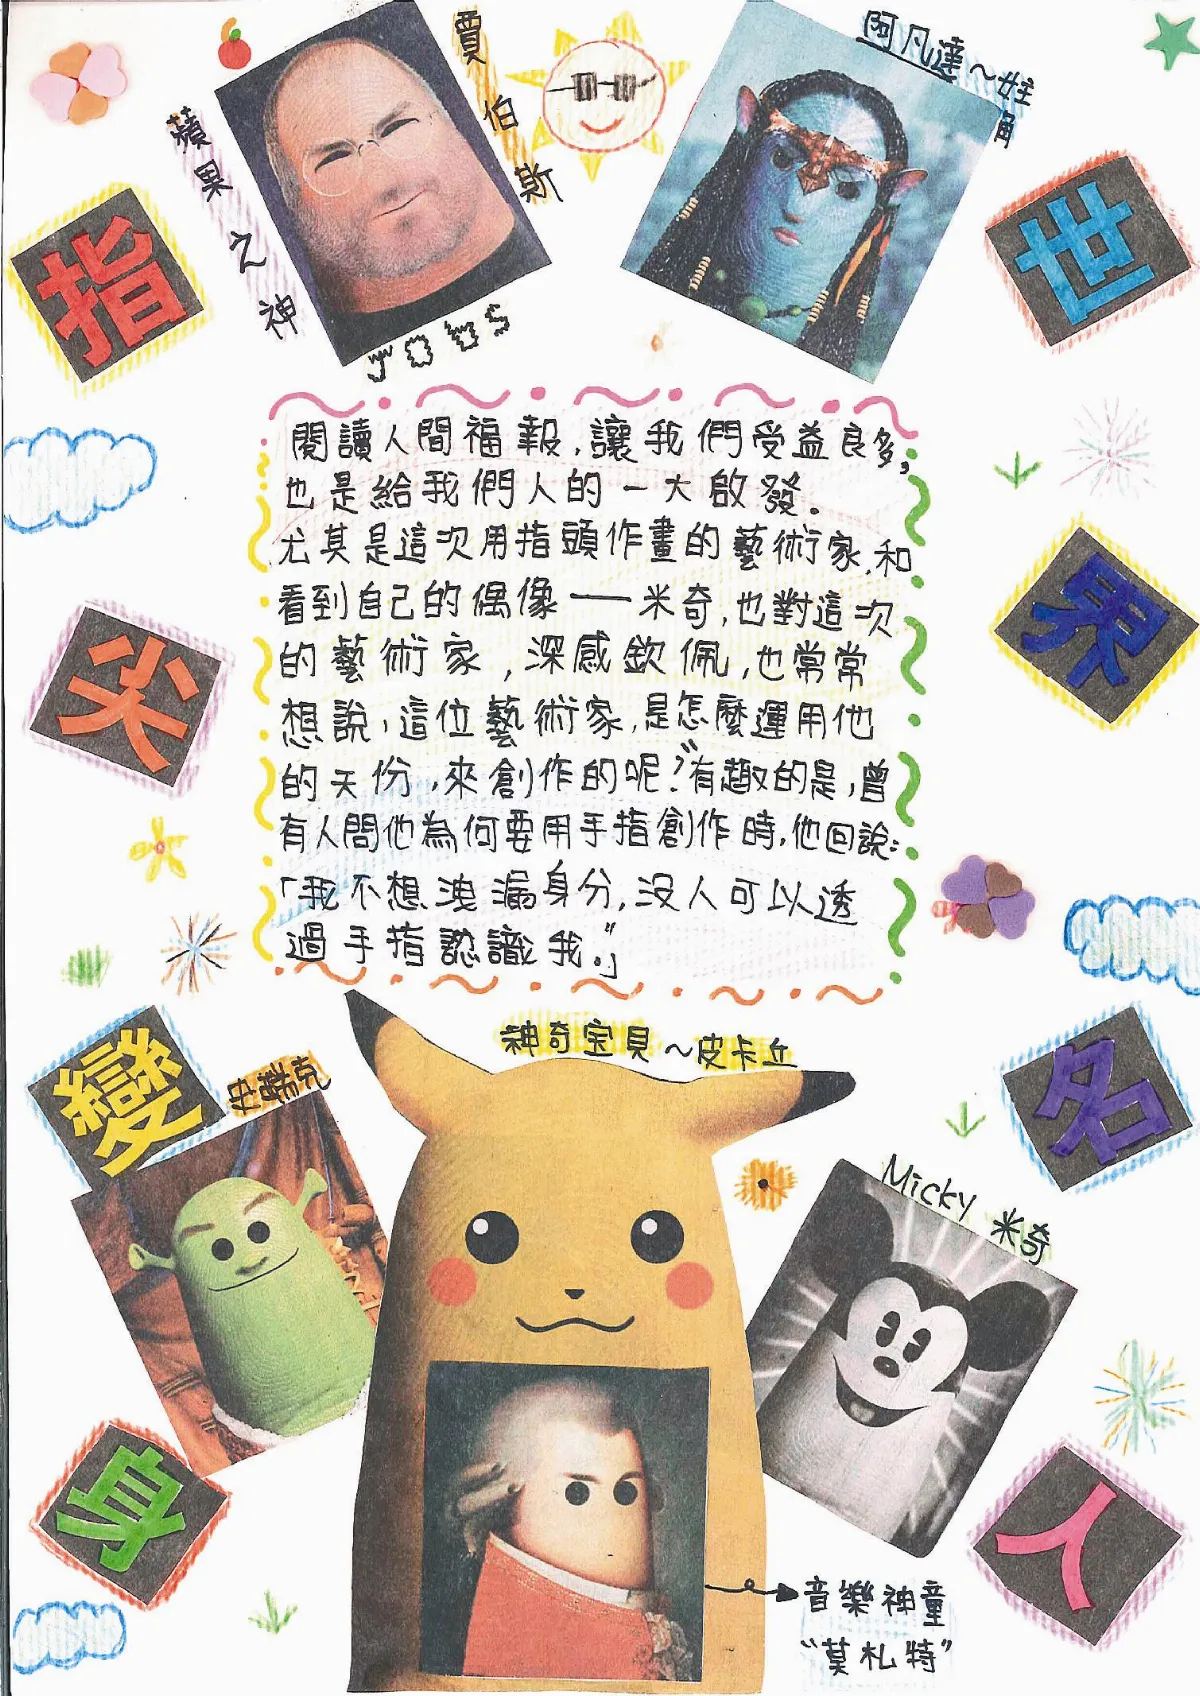 指尖變身
世界名人
蘋果之神
賈伯斯
JOBS
阿凡達～女主角
閱讀人間福報,讓我們受益良多,
也是給我們人的一大啟發。
尤其是這次用指頭作畫的藝術家,和
看到自己的偶像——米奇,也對這次
的藝術家,深感欽佩,也常常
想說,這位藝術家,是怎麼運用他
的天份,來創作的呢?"有趣的是,曾
有人問他為何要用手指創作時,他回說:
「我不想洩漏身分,沒人可以透
過手指認識我."」
神奇宝貝～皮卡丘
史瑞克
Micky 米奇
音樂神童
"莫札特"